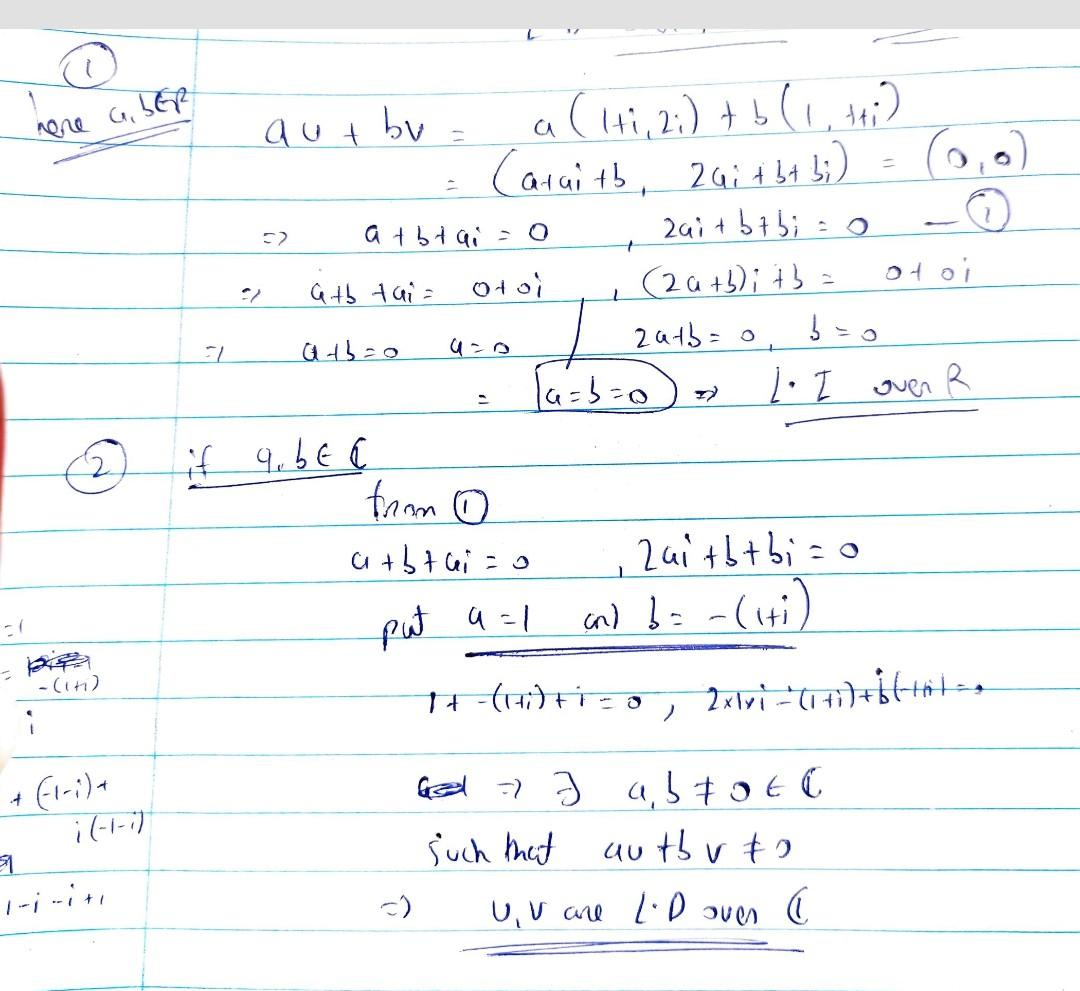 ①
here a, b ∈ R
au + bv = a(1+i, 2i) + b(1, 1+i)
= (a+ai+b, 2ai+b+bi) = (0,0)
=> a+b+ai = 0 , 2ai+b+bi = 0 — ①
=> a+b+ai = 0+0i , (2a+b)i+b = 0+0i
=> a+b=0 a=0 / 2a+b=0, b=0
= a=b=0 => L.I over R
② if a, b ∈ ℂ
from ①
a+b+ai=0 , 2ai+b+bi=0
put a=1 and b= -(1+i)
=1
= -(1+i)
i
1+ -(1+i)+i=0, 2×1×i-(1+i)+i(-1-i)=0
+(-1-i)+
i(-1-i)
=> ∃ a,b≠0∈ℂ
such that au+bv≠0
1-i-i+1
=> u,v are L.D over ℂ